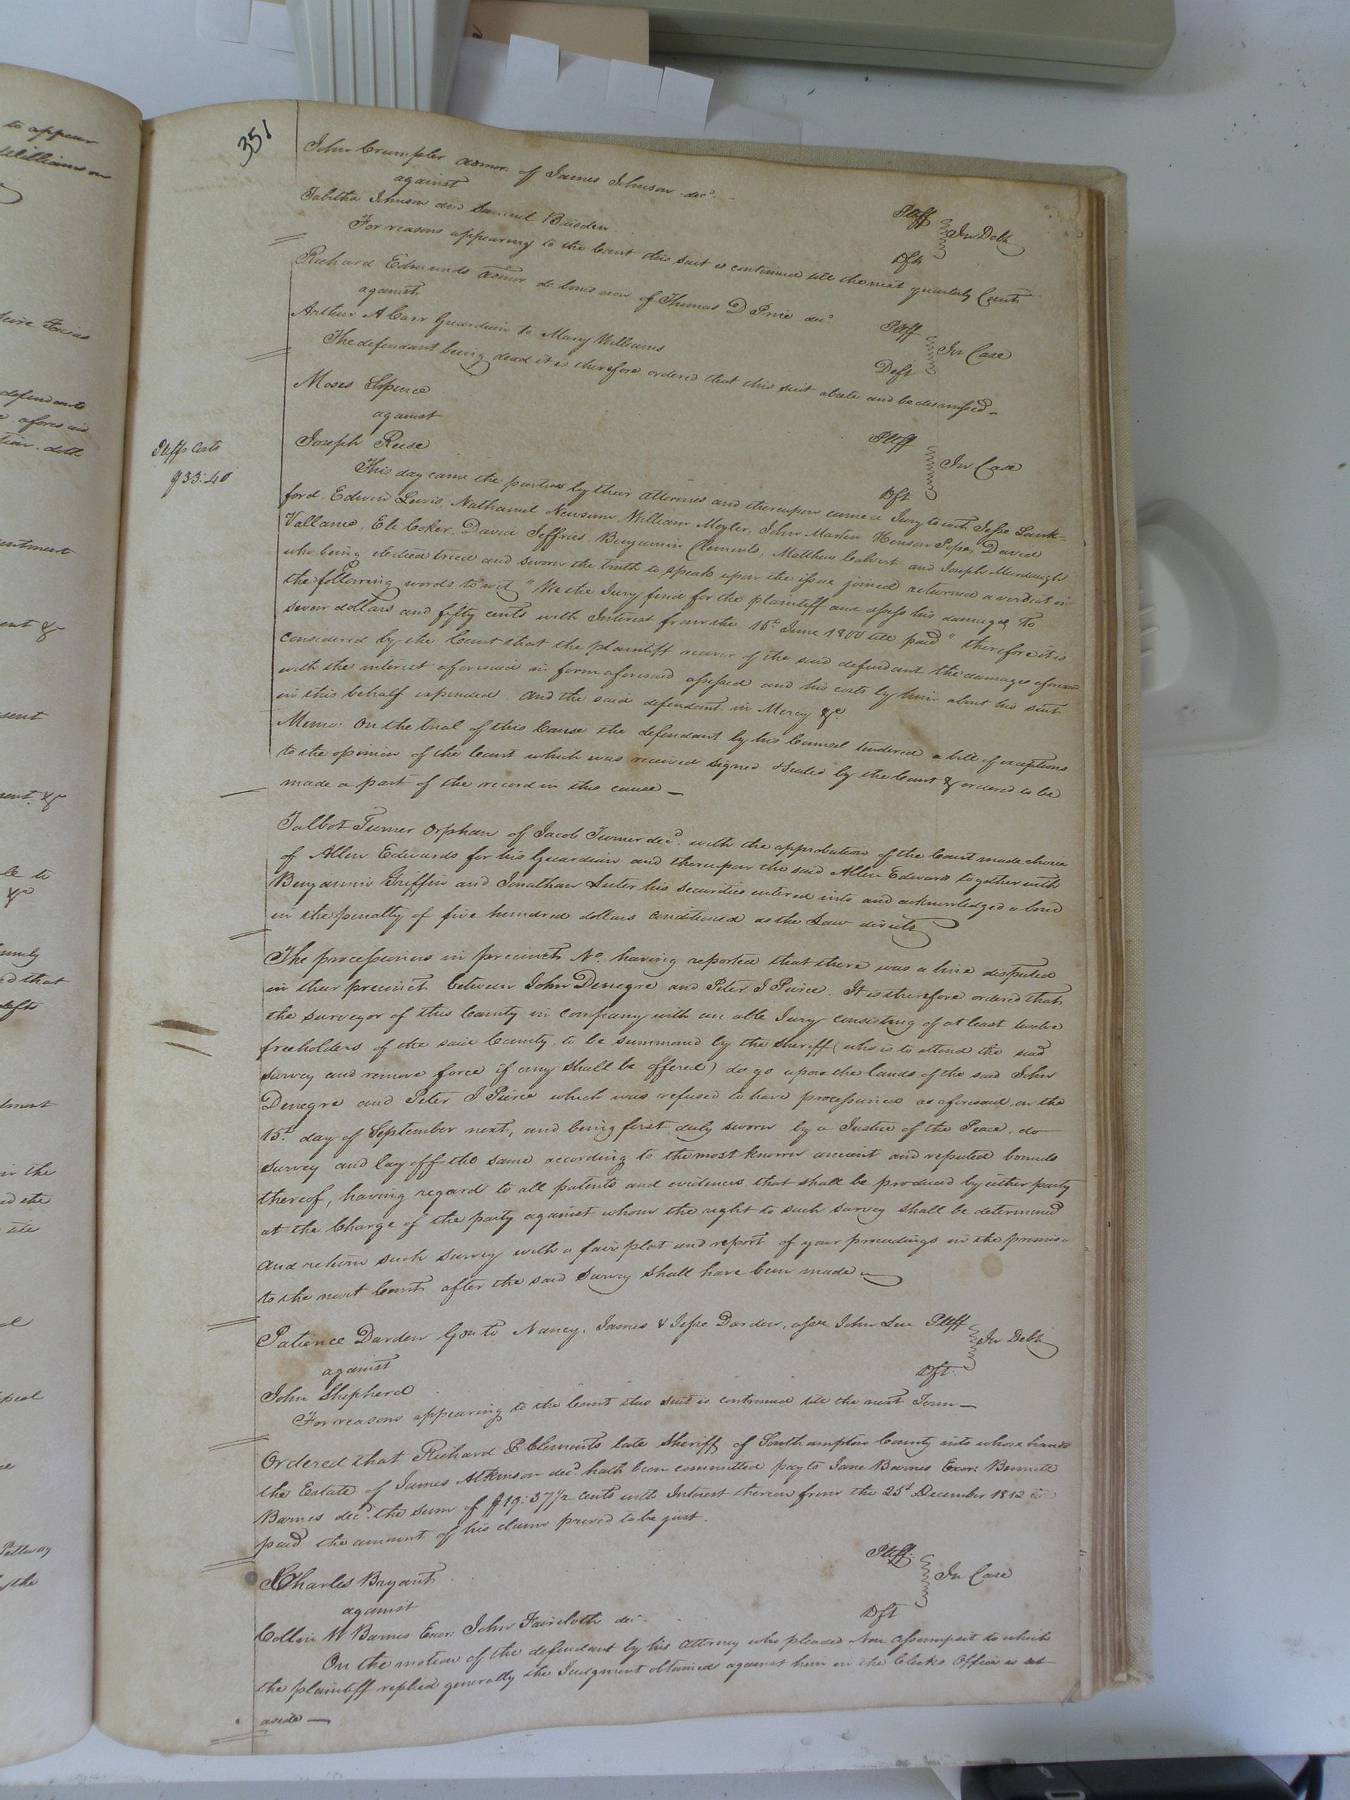 351
John Crumpler admor. of James Johnson decd. Pltff
against In Debt
Tabitha Johnson and Samuel Dft
For reasons appearing to the Court this suit is continued till the next quarterly Court
Richard Edmunds admor de bonis non of Thomas D Price decd Pltff
against In Case
Arthur A Carr Guardian to Mary Williams Deft
The defendant being dead it is therefore ordered that this suit abate and be dismissed
Moses Spence Pltff
against In Case
Joseph Reese Dft
Pltffs Costs
$33:40
This day came the parties by their attornies and thereupon came a Jury to wit, Jesse Lank=
ford, Edwin Lewis, Nathaniel Newsum, William Moyler, John Martin Henson Pope, David
Vallance, Eli Coker, David Jeffries, Benjamin Clements, Matthew Calvert and Joseph Murdaugh
who being elected tried and sworn the truth to speak upon the issue joined returned a verdict in
the following words to wit "We the Jury find for the plaintiff and assess his damages to
seven dollars and fifty cents with Interest from the 15th June 1800 till paid" therefore it is
considered by the Court that the plaintiff recover of the said defendant the damages aforesaid
with the interest aforesaid in form aforesaid assessed and his costs by him about his suit
in this behalf expended. And the said defendant in Mercy &c
Memo. On the trial of this Cause the defendant by his Counsel tendered a bill of exceptions
to the opinion of the Court which was received signed & sealed by the Court & ordered to be
made a part of the record in this cause —
Talbot Turner orphan of Jacob Turner decd. with the approbation of the Court made choice
of Allen Edwards for his Guardian and thereupon the said Allen Edwards together with
Benjamin Griffin and Jonathan Luter his securities entered into and acknowledged a bond
in the penalty of five hundred dollars conditioned as the Law directs
The processioners in precinct No. having reported that there was a line disputed
in their precinct between John Denegre and Peter J Peirce. It is therefore ordered that
the surveyor of this County in company with an able Jury consisting of at least twelve
freeholders of the said County, to be summoned by the sheriff (who is to attend the said
survey and remove force if any shall be offered) do go upon the lands of the said John
Denegre and Peter J Peirce which was refused to have processioned as aforesaid, on the
15th. day of September next, and being first duly sworn by a Justice of the Peace, do
survey and lay off the same according to the most known ancient and reputed bounds
thereof, having regard to all patents and evidences that shall be produced by either party
at the Charge of the party against whom the right to such survey shall be determined
And return such survey with a fair plot and report of your proceedings in the premises
to the next Court after the said Survey shall have been made —
Patience Darden Gn to Nancy, James & Jesse Darden, assee John Lee Pltff
against In Debt
John Shepherd Dft.
For reasons appearing to the Court this suit is continued till the next Term —
Ordered that Richard E Clements late Sheriff of Southampton County into whose hands
the Estate of James Atkinson decd hath been committed pay to Jane Barnes Exor: Bennett
Barnes decd. the sum of $19:37½ cents with Interest thereon from the 25th December 1812 till
paid the amount of his claim proved to be just.
Charles Bryant Pltff.
against In Case
Collin W Barnes Exor: John Faircloth decd. Dft
On the motion of the defendant by his attorney who pleaded Non assumpsit to which
the plaintiff replied generally the Judgment obtained against him in the Clerks Office is set
aside —